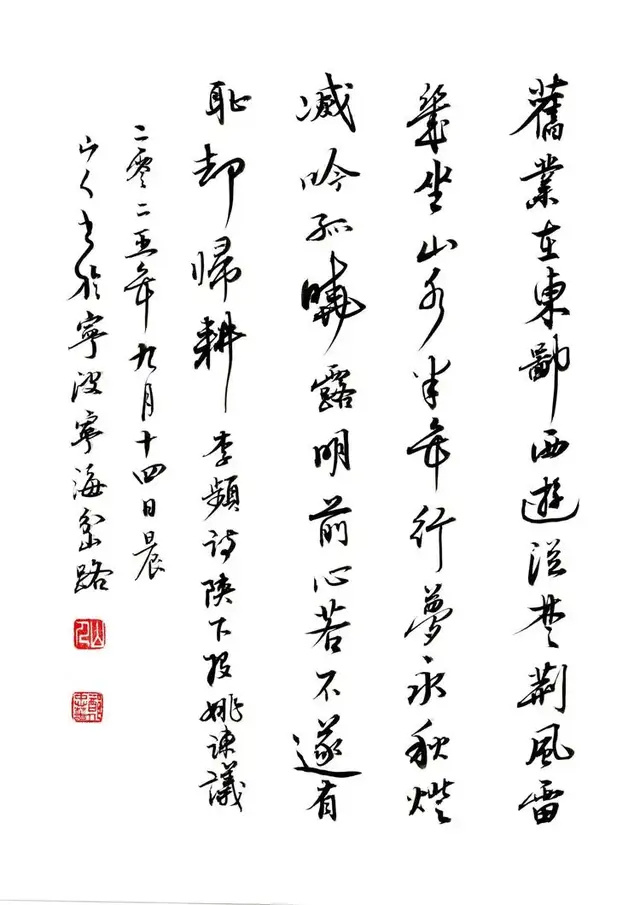 舊業在東鄙西遊從楚荊風雷
幾坐山水半年行夢永秋燈
滅吟孤曉露明前心若不遂有
耻却歸耕李頻詩陝下投姚諫議
二零二五年九月十四日晨
山人書於寧波寧海岔路
山人